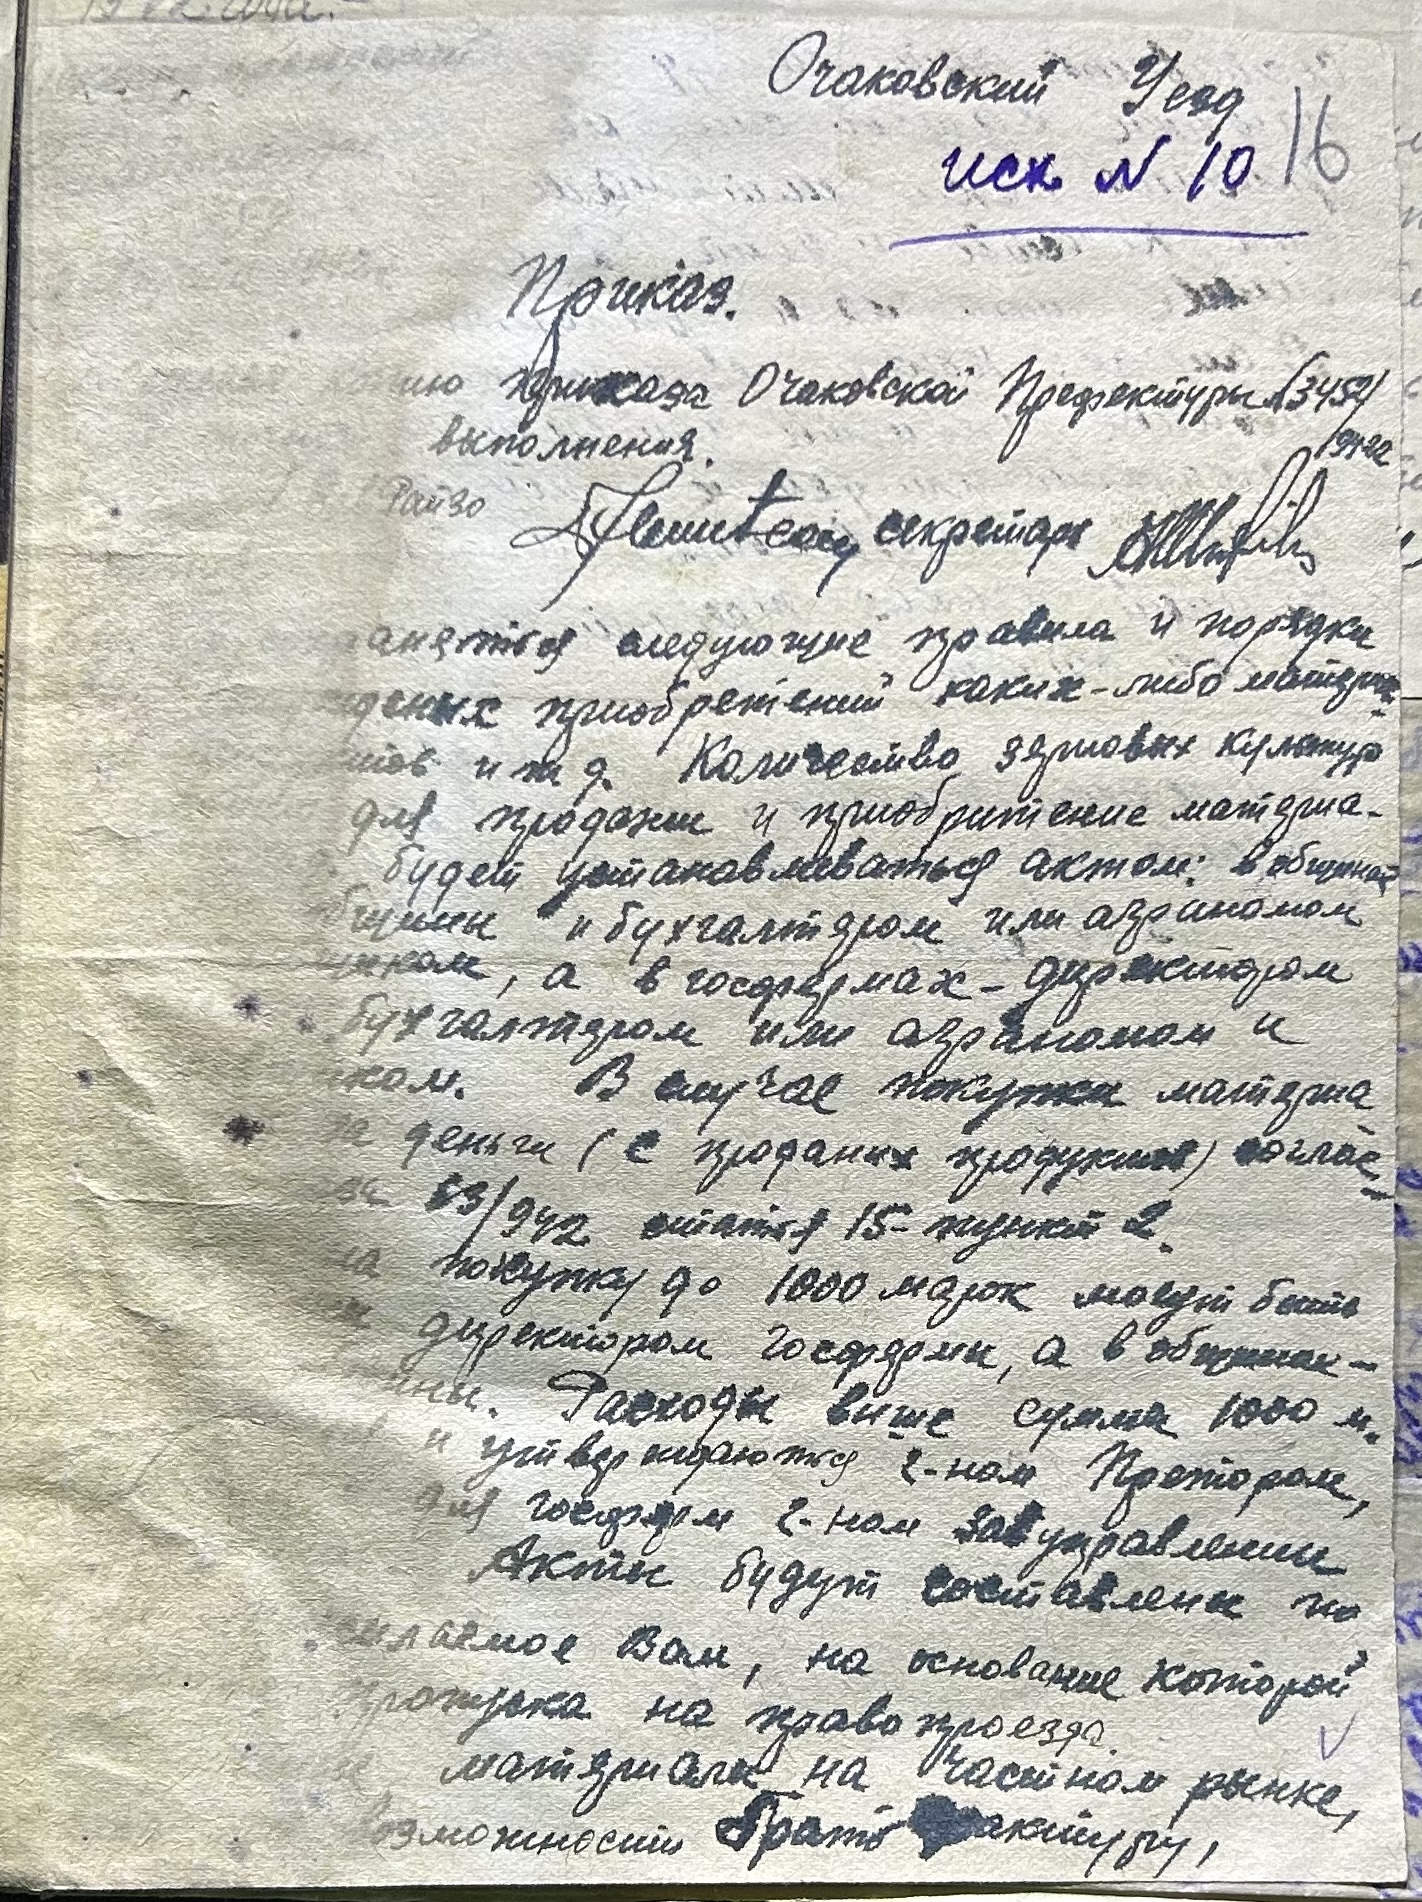 Очаковский Уезд
16
исх N 10
Приказ.
нию приказа Очаковской Префектуры N3452/
942
выполнения.
Райзо
секретарь
следующие правила и порядки
приобретений каких-либо материа-
и т д. Количество зерновых культур
для продажи и приобритение материа-
будет устанавливаться актом: в общинах
и бухгалтером или агрономом
, а в госфермах - директором
бухгалтером или агрономом и
ком. В случае покупки материа
за деньги (с проданих продуктов) соглас-
83/942 статья 15- пункт 2.
на покупку до 1000 марок могут быть
директором госфермы, а в общинах -
ины. Расходы више сумма 1000 м.
и утверждаются г-ном Претором,
для госферм г-ном Зав управлении
Акты будут составлены по
Вам, на основание которой
пропуска на право проезда.
материалы на частном рынке,
возможности брать фактуру,